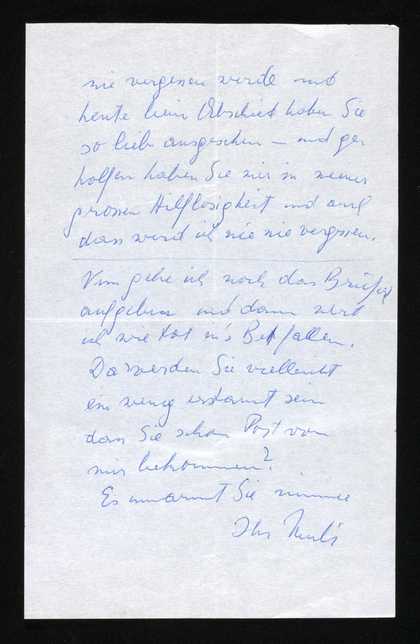 nie vergessen werde und
heute beim Abschied haben Sie
so lieb ausgesehen – und ge-
holfen haben Sie mir in meiner
grossen Hilflosigkeit und auch
dass werd ich nie nie vergessen.
Nun gehe ich noch das Brieferl
aufgeben und dann werd
ich wie tot in's Bett fallen.
Da werden Sie vielleicht
ein wenig erstaunt sein
dass Sie schon Post von
mir bekommen?
Es umarmt Sie immer
Ihr